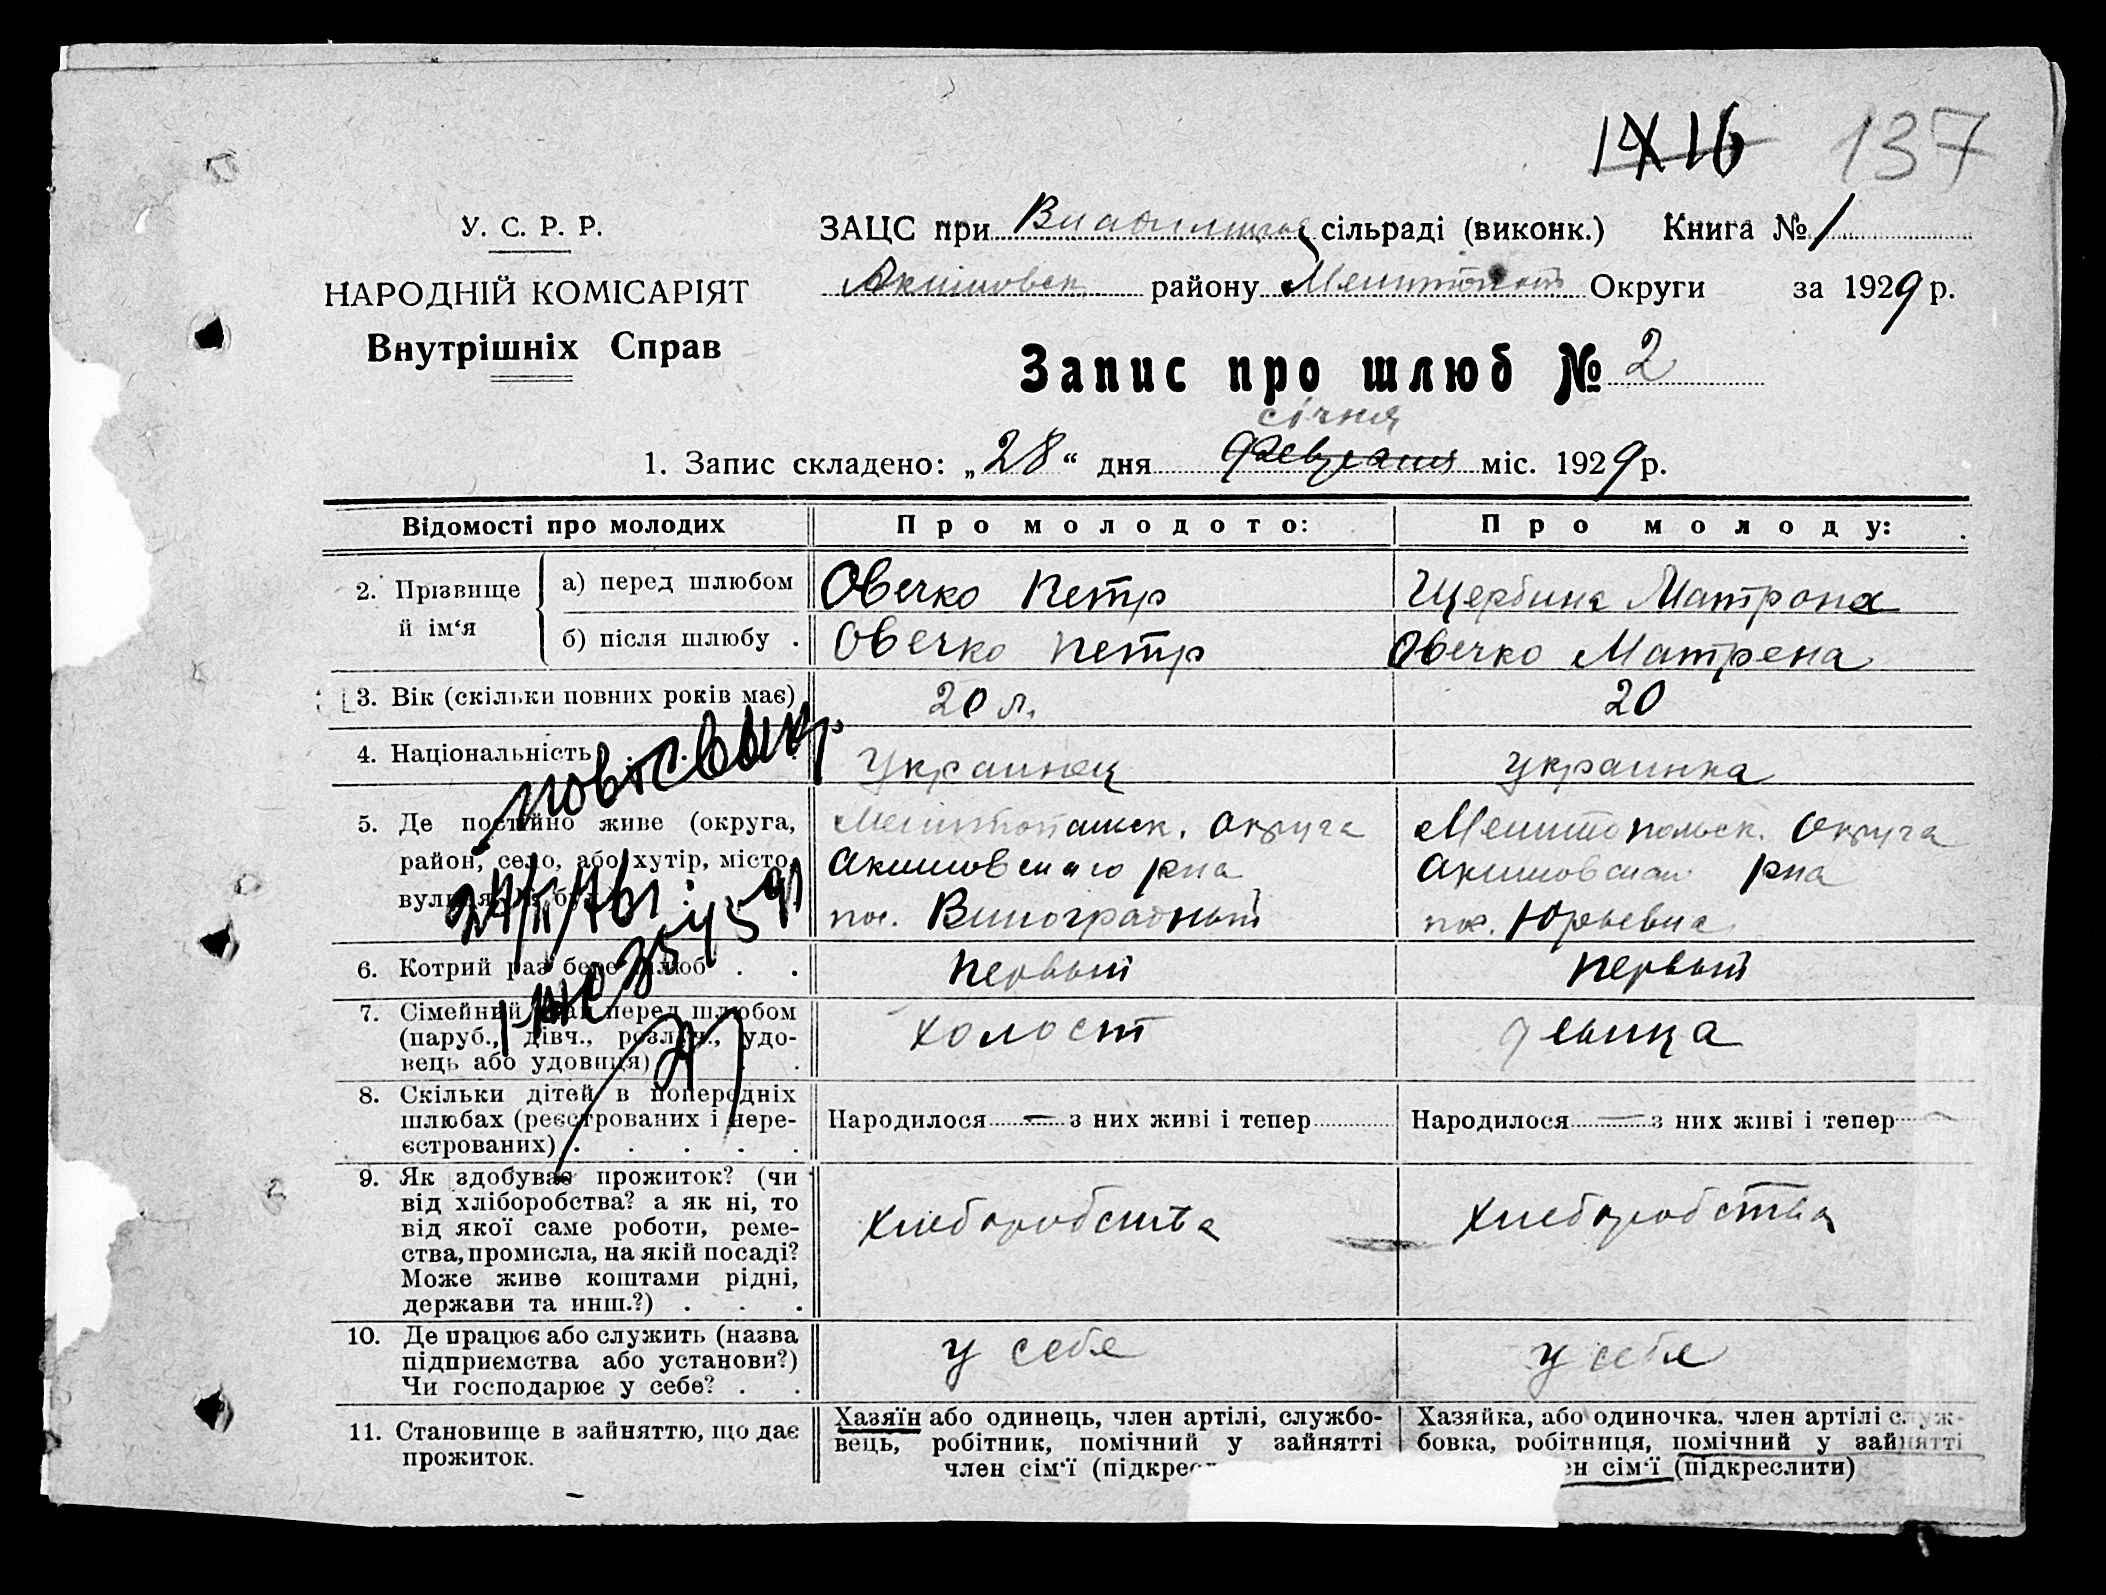 14 16 137
У. С. Р. Р.
НАРОДНІЙ КОМІСАРІЯТ
Внутрішніх Справ
ЗАЦС при сільраді (виконк.) Книга № 1
Акимовск району Мелитопольск Округи за 1929 р.
Запис про шлюб № 2
січня
1. Запис складено: „28“ дня февраля міс. 1929 р.
Відомості про молодих Про молодого: Про молоду:
2. Прізвище й ім‘я
а) перед шлюбом Овечко Петр Щербина Матрона
б) після шлюбу . Овечко Петр Овечко Матрена
3. Вік (скільки повних років має) 20 л. 20
4. Національність . . . Украинец украинка
5. Де постійно живе (округа,
район, село, або хутір, місто,
вулиця
Мелитопольск. округа
Акимовского рна
пос. Виноградный
Мелитопольск. округа
Акимовскаи рна
пос. Юрьевка
6. Котрий раз бере шлюб . . Первый Первый
7. Сімейний стан перед шлюбом
(паруб., дівч., розлуч., удо-
вець або удовиця)
холост девица
8. Скільки дітей в попередніх
шлюбах (реєстрованих і нере-
єстрованих) . . . .
Народилося — з них живі і тепер Народилося — з них живі і тепер —
9. Як здобуває прожиток? (чи
від хліборобства? а як ні, то
від якої саме роботи, реме-
ства, промисла, на якій посаді?
Може живе коштами рідні,
держави та инш.?) . . .
хлеборобства хлеборобства
10. Де працює або служить (назва
підприємства або установи?)
Чи господарює у себе? . .
у себе у себе
11. Становище в зайняттю, що дає
прожиток.
Хазяїн або одинець, член артілі, службо-
вець, робітник, помічний у зайнятті
член сім‘ї (підкрес
Хазяйка, або одиночка, член артілі служ-
бовка, робітниця, помічний у зайнятті
ен сім‘ї (підкреслити)